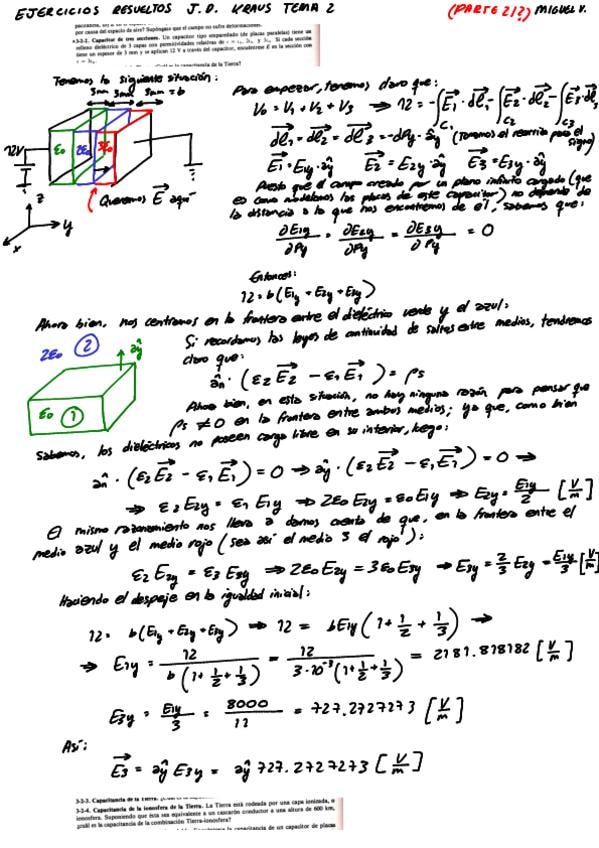 EJERCICIOS RESUELTOS J.D. KRAUS TEMA 2 (PARTE 2/?) MIGUEL V.
por causa del espacio de aire? Supóngase que el campo no sufre deformaciones.
3-2-2. Capacitor de tres secciones. Un capacitor tipo emparedado (de placas paralelas) tiene un
relleno dieléctrico de 3 capas con permitividades relativas de
tiene un espesor de 3 mm y se aplican 12 V a través del capacitor, encuéntrese E en la sección con
la capacitancia de la Tierra?
Tenemos la siguiente situación:
3mm 3mm 3mm = b
12V
ε0 2ε0 3ε0
z
y
x
Queremos E⃗ aquí
Para empezar, tenemos claro que:
V0 = V1 + V2 + V3 ⇒ 12 = -∫C1 E1⃗·dl1⃗ - ∫C2 E2⃗·dl2⃗ - ∫C3 E3⃗·dl3⃗
dl1⃗ = dl2⃗ = dl3⃗ = -dPy·ây (Tomamos el recorrido para el signo)
E1⃗ = E1y·ây E2⃗ = E2y·ây E3⃗ = E3y·ây
Puesto que el campo creado por un plano infinito cargado (que
es como modelamos las placas de este capacitor) no depende de
la distancia a la que nos encontremos de él, sabemos que:
∂E1y/∂Py = ∂E2y/∂Py = ∂E3y/∂Py = 0
Entonces:
12 = b(E1y + E2y + E3y)
Ahora bien, nos centramos en la frontera entre el dieléctrico verde y el azul:
2ε0 (2) ây
ε0 (1)
Si recordamos las leyes de continuidad de saltos entre medios, tendremos
claro que:
ân·(ε2E2⃗ - ε1E1⃗) = ρs
Ahora bien, en esta situación, no hay ninguna razón para pensar que
ρs ≠ 0 en la frontera entre ambos medios; ya que, como bien
sabemos, los dieléctricos no poseen carga libre en su interior, luego:
ân·(ε2E2⃗ - ε1E1⃗) = 0 → ây·(ε2E2⃗ - ε1E1⃗) = 0 →
⇒ ε2E2y = ε1E1y ⇒ 2ε0E2y = ε0E1y ⇒ E2y = E1y/2 [V/m]
El mismo razonamiento nos lleva a darnos cuenta de que, en la frontera entre el
medio azul y el medio rojo (sea así el medio 3 el rojo):
ε2E2y = ε3E3y ⇒ 2ε0E2y = 3ε0E3y ⇒ E3y = 2/3 E2y = E1y/3 [V/m]
Haciendo el despeje en la igualdad inicial:
12 = b(E1y + E2y + E3y) ⇒ 12 = bE1y(1 + 1/2 + 1/3) →
⇒ E1y = 12/(b(1 + 1/2 + 1/3)) = 12/(3·10⁻³(1 + 1/2 + 1/3)) = 2181.818182 [V/m]
E3y = E1y/3 = 8000/11 = 727.2727273 [V/m]
Así:
E3⃗ = ây E3y = ây 727.2727273 [V/m]
3-2-3. Capacitancia de la Tierra.
3-2-4. Capacitancia de la ionosfera de la Tierra. La Tierra está rodeada por una capa ionizada, o
ionosfera. Suponiendo que ésta sea equivalente a un cascarón conductor a una altura de 600 km,
¿cuál es la capacitancia de la combinación Tierra-ionosfera?
la capacitancia de un capacitor de placas